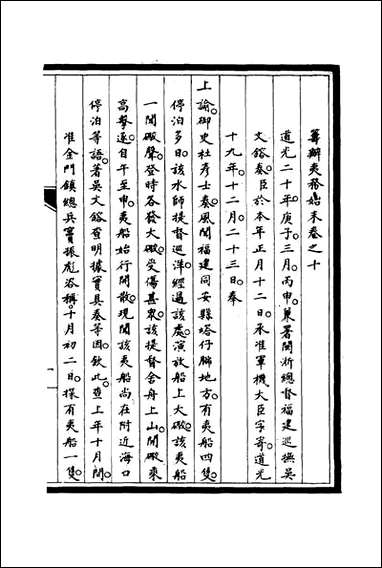 籌辦夷務始末卷之十
道光二十年庚子三月丙申兼署閩浙總督福建巡撫吳
文鎔奏臣於本年正月十二日承准軍機大臣字寄道光
十九年十二月二十三日奉
上諭御史杜彥士奏風聞福建同安縣塔仔腳地方有夷船四隻
停泊多日該水師提督巡洋經過該處演放船上大礮該夷船
一聞礮聲登時各發大礮受傷甚眾該提督舍舟上山開礮來
高擊遂自午至申夷船始行開散現聞該夷船尚在附近海口
停泊等語著吳文鎔查明據實具奏等因欽此查上年十月間
准金門鎮總兵竇振彪咨稱十月初二日探有夷船一隻